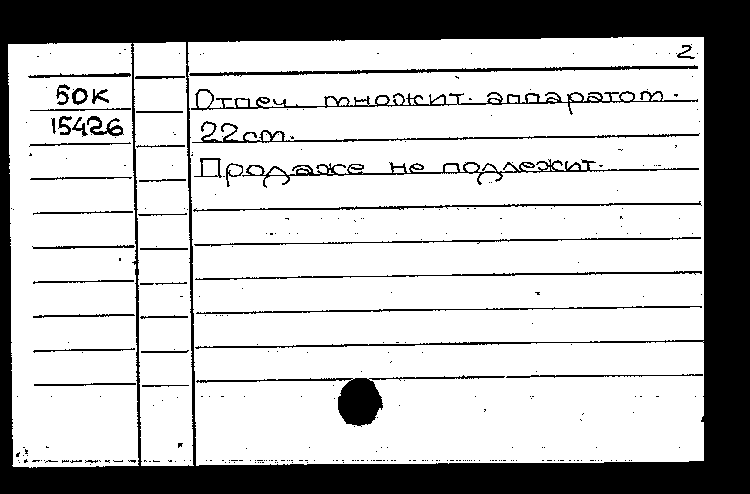 2
50К Отпеч. множит. аппаратом.
15426 22 см.
Продаже не подлежит.